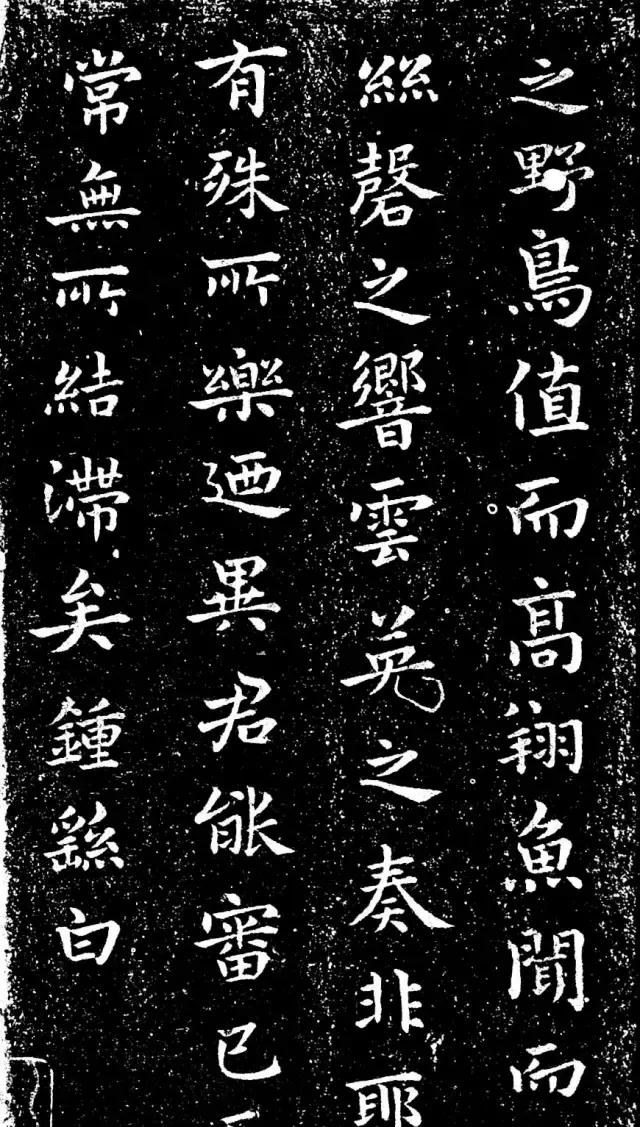 之野鳥值而高翔魚聞而
絲磬之響雲英之奏非耶
有殊所樂廼異君能審己
常無所結滯矣鍾繇白